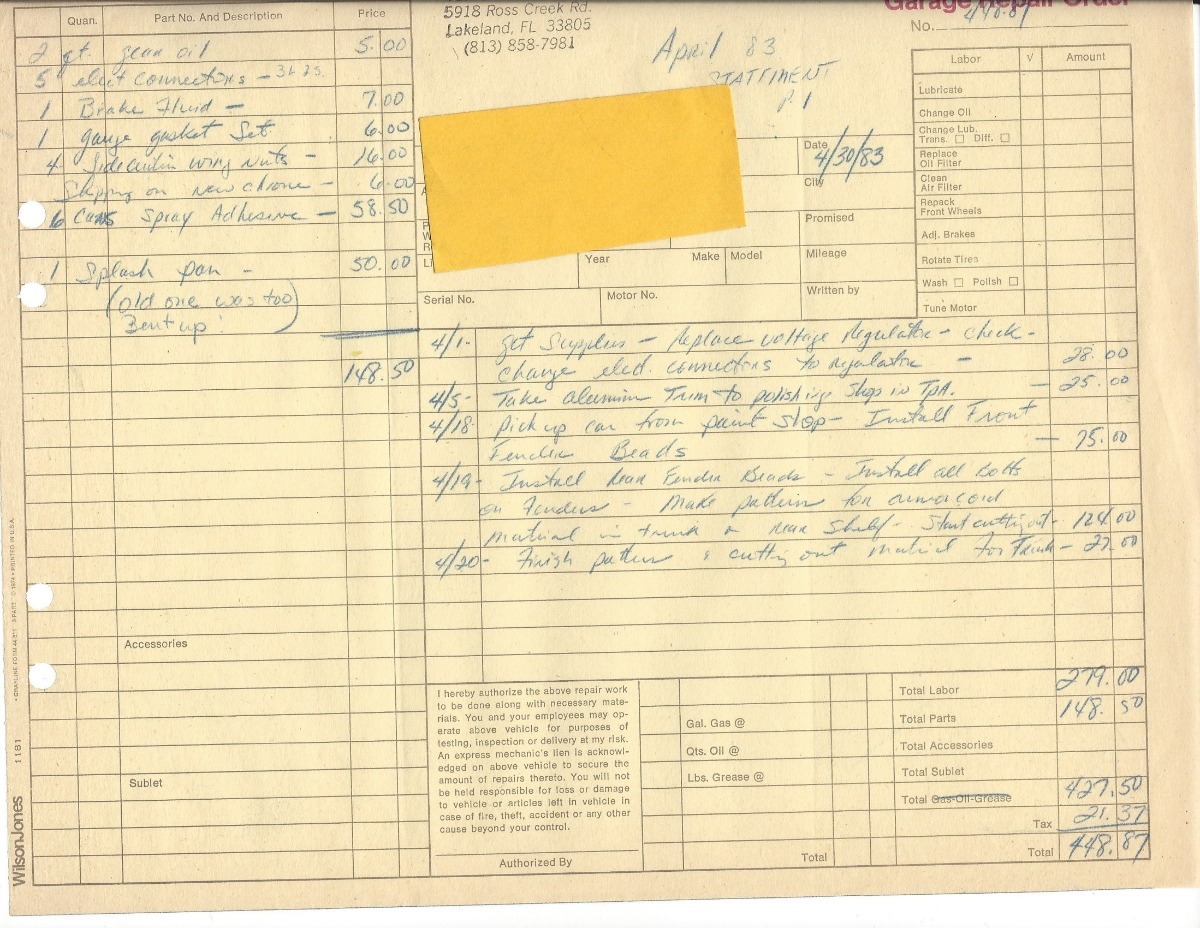 Quan. Part No. And Description Price
2 qt. gear oil 5.00
5 elect connections —
1 Brake Fluid — 7.00
1 gauge gasket Set 6.00
4 wing nuts — 16.00
on new chrome — 6.00
6 Cans Spray Adhesive — 58.50
1 Splash pan — 50.00
(old one was too
Bent up!)
148.50
Accessories
Sublet
WilsonJones
1181
5918 Ross Creek Rd.
Lakeland, FL 33805
(813) 858-7981
April 83
STATTMENT
P. 1
Garage Repair Order
No.
Date 4/30/83
City
Promised
Year Make Model Mileage
Serial No. Motor No. Written by
Labor √ Amount
Lubricate
Change Oil
Change Lub.
Trans. ☐ Diff. ☐
Replace
Oil Filter
Clean
Air Filter
Repack
Front Wheels
Adj. Brakes
Rotate Tires
Wash ☐ Polish ☐
Tune Motor
4/1- get Supplies — Replace voltage Regulator — check —
change elect. connections to regulator — 28.00
4/5- Take aluminum Trim to polishing Shop in TPA. — 25.00
4/18- Pick up car from paint shop — Install Front
Fender Beads — 75.00
4/19- Install Rear Fender Beads — Install all Bolts
on Fenders — Make pattern for
Material in trunk & rear Shelf — Start cutting out — 124.00
4/20- Finish pattern & cutting out material for Trunk — 27.00
I hereby authorize the above repair work
to be done along with necessary mate-
rials. You and your employees may op-
erate above vehicle for purposes of
testing, inspection or delivery at my risk.
An express mechanic's lien is acknowl-
edged on above vehicle to secure the
amount of repairs thereto. You will not
be held responsible for loss or damage
to vehicle or articles left in vehicle in
case of fire, theft, accident or any other
cause beyond your control.
Authorized By
Gal. Gas @
Qts. Oil @
Lbs. Grease @
Total
Total Labor 279.00
Total Parts 148.50
Total Accessories
Total Sublet
Total Gas-Oil-Grease 427.50
Tax 21.37
Total 448.87